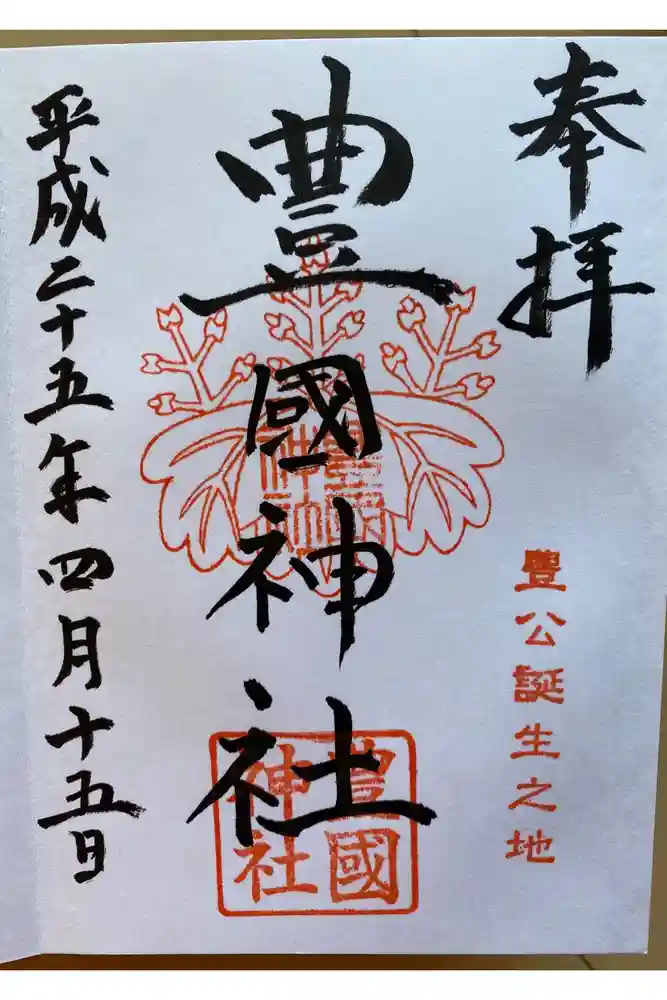 奉拝
豊公誕生之地
豊國神社
豊國神社
平成二十五年四月十五日